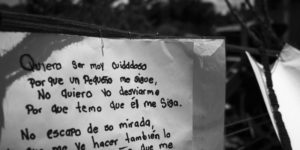 Quiero ser muy cuidadoso
Por que un Pequeño me sigue,
No quiero Yo desviarme
Por que temo que él me Siga.
No escapo de su mirada,
que me ve hacer también lo
que me